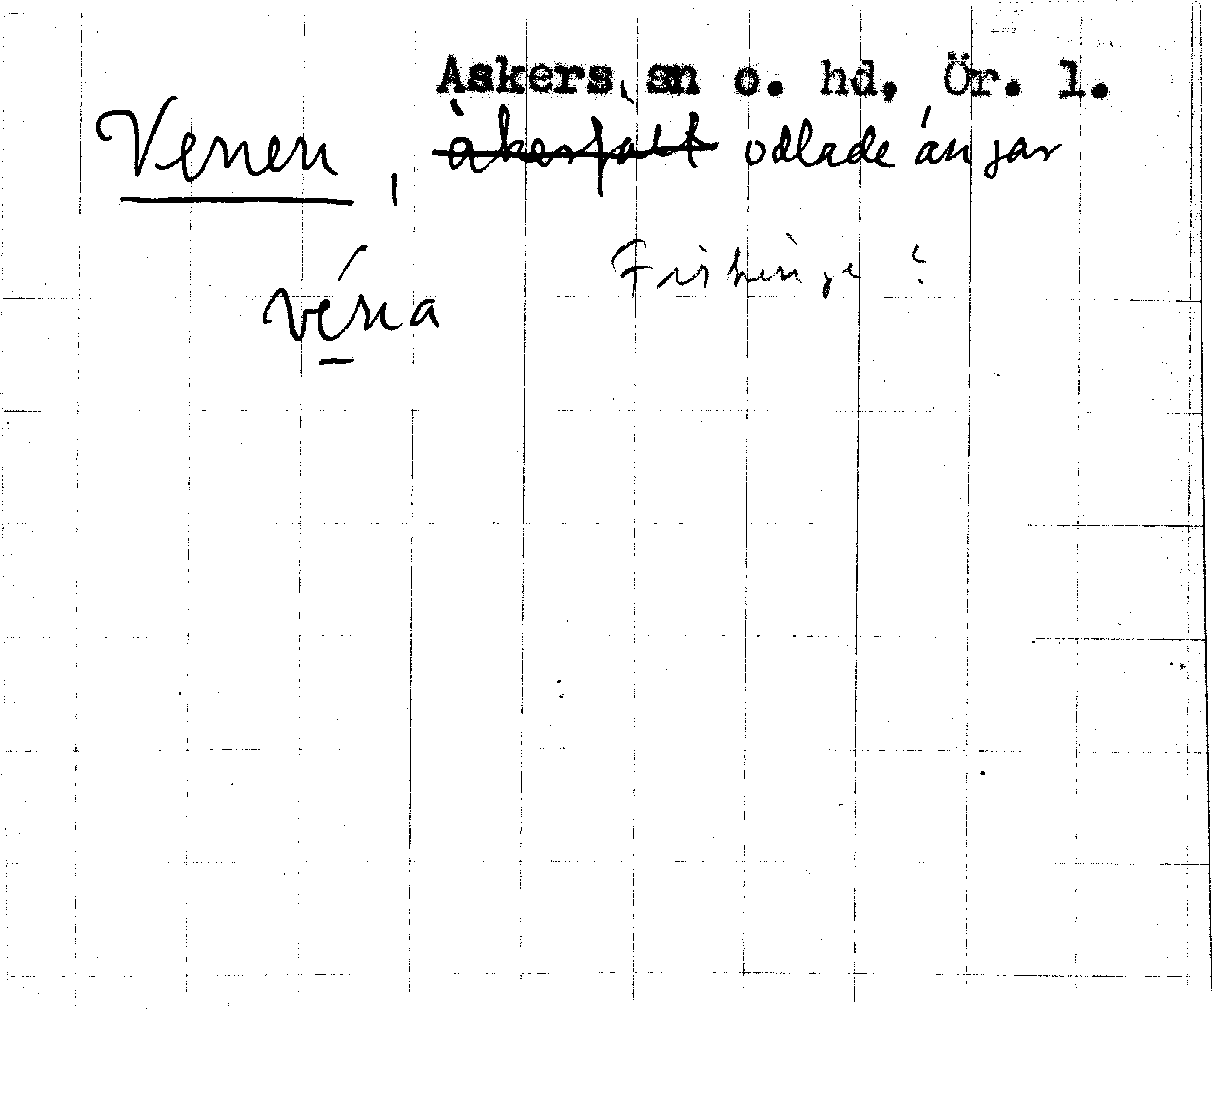 Askers sn o. hd, Ör. l.
Venen, ~~åkerfält~~ odlade ängar
Fiskinge?
véna